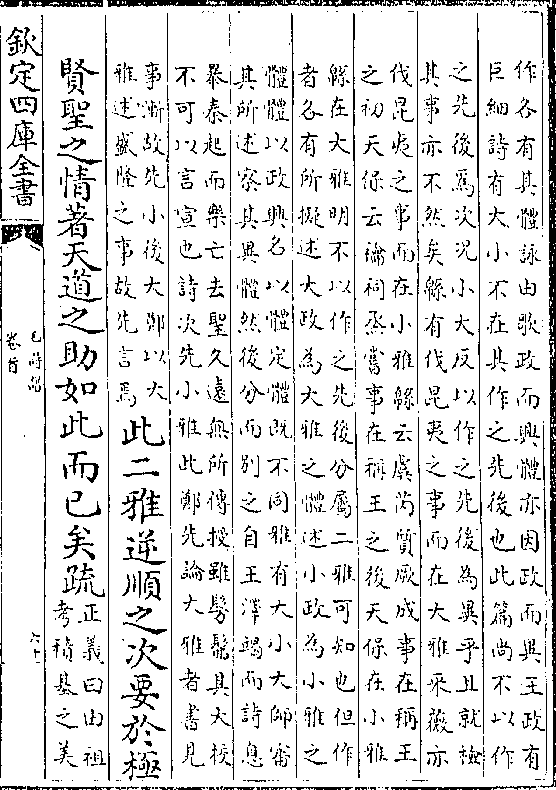 作各有其體詠由歌政而興體亦因政而異王政有
巨細詩有大小不在其作之先後也此篇尚不以作
之先後爲次况小大反以作之先後為異乎且就檢
其事亦不然矣緜有伐昆夷之事而在大雅采薇亦
伐昆夷之事而在小雅緜云虞芮質厥成事在稱王
之初天保云禴祠烝嘗事在稱王之後天保在小雅
緜在大雅明不以作之先後分屬二雅可知也但作
者各有所擬述大政為大雅之體述小政為小雅之
體體以政興名以體定體既不同雅有大小大師審
其所述察其異體然後分而別之自王澤竭而詩息
暴秦起而樂亡去聖久遠無所傳授雖髣髴其大校
不可以言宣也詩次先小雅此鄭先論大雅者書見
事漸故先小後大鄭以大
雅述盛隆之事故先言焉
此二雅逆順之次要於極
賢聖之情著天道之助如此而已矣疏
正義曰由祖
考積基之美
欽定四庫全書
毛詩譜
卷首